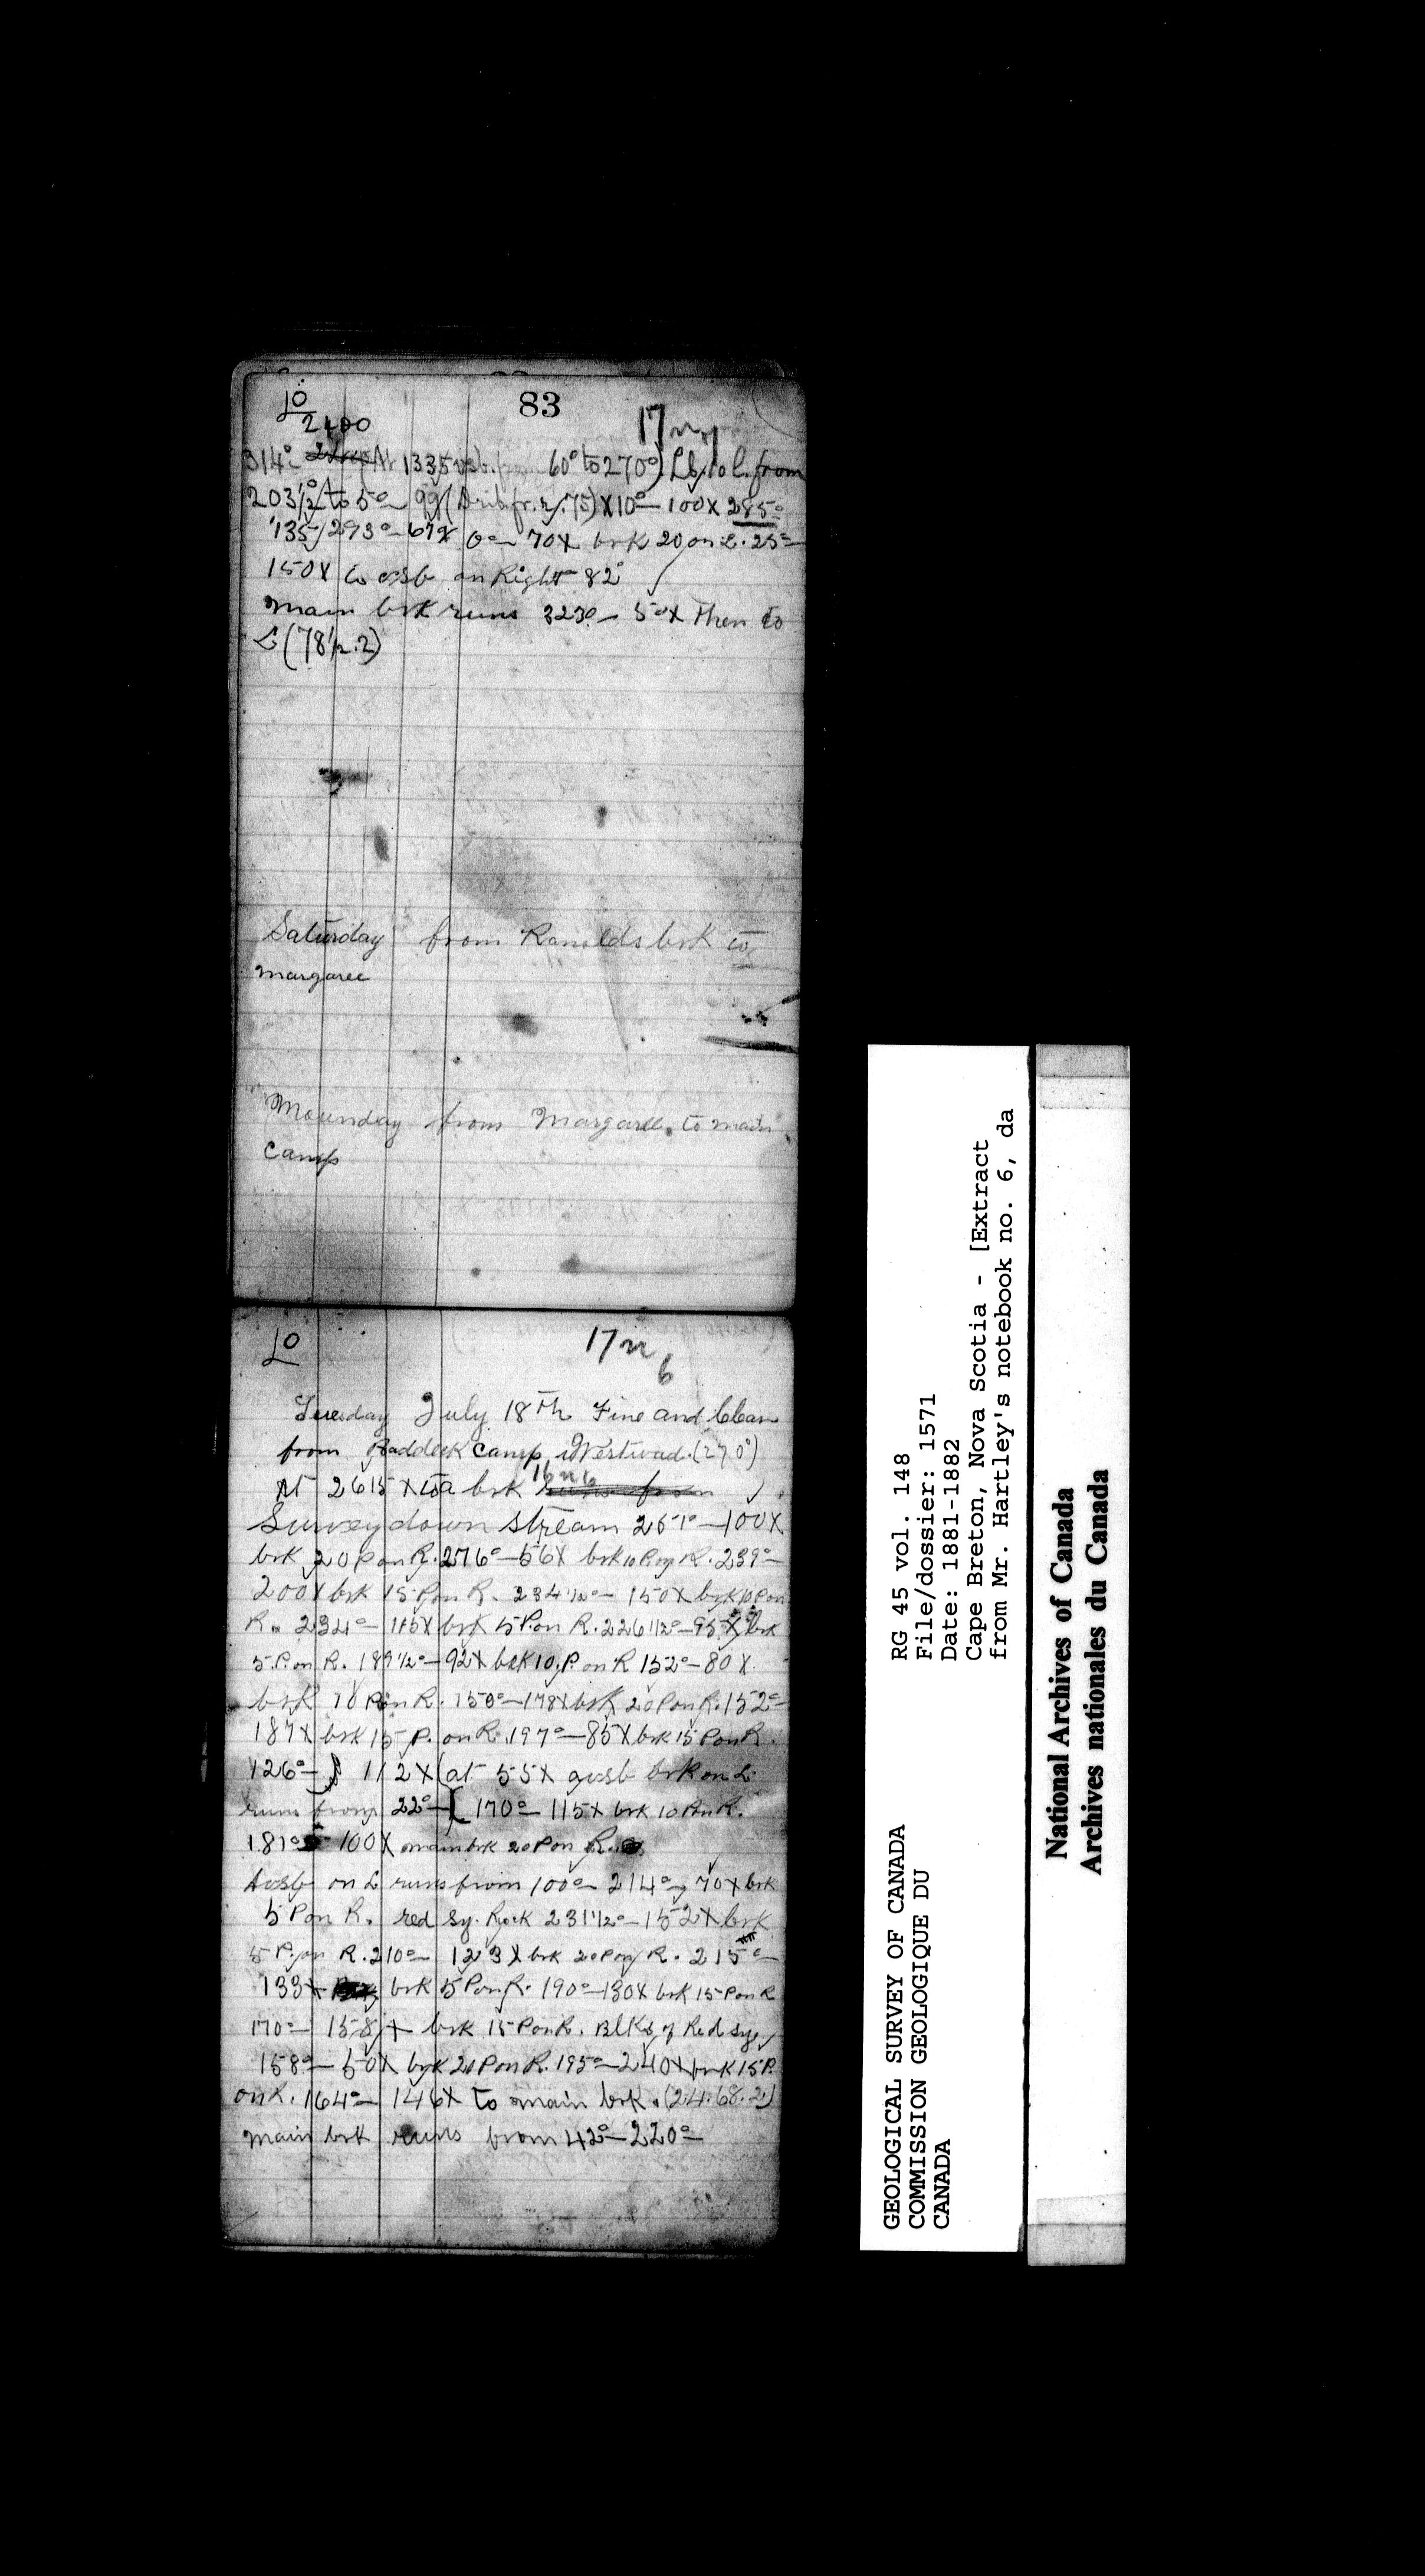 10
83
2400
17 n
314° At 1335 vsb. from 60° to 270°) Lb. to l. from
203½° to 5° 99 ( fr. r/.75) X 10° — 100X 285°
135/293° — 67X 0° — 70X brk 20 on L. 25°—
150X to vsb on Right 82°
Main brk runs 323° — 50X Then to
L (78½.2)
Saturday from Ranolds brk to
margaree
Mounday from Margaree to main
Camp
10
17 n 6
Tuesday July 18th Fine and Clear
from Baddeck Camp Westward. (270°)
At 2615 X to a brk 16 n 6
Survey down stream 251° — 100X
brk 20 P on R. 276° — 56X brk 10 P on R. 239° —
200X brk 15 P on R. 234½° — 150X brk 10 P on
R. 234° — 115X brk 5 P. on R. 226½° — 95X brk
5 P. on R. 189½° — 92X brk 10. P. on R 152° — 80X
brk 10 P on R. 150° — 178X brk 20 P on R. 152° —
187X brk 15 P. on R. 197° — 85X brk 15 P on R.
126° — 112X (at 55X gvsb brk on L.
runs from 22° —) 170° — 115X brk 10 P on R.
181° 100X main brk 20 P on R.
Avsb on L runs from 100° — 214° — 70X brk
5 P on R. red Sy. Rock 231½° — 152X brk
5 P. on R. 210° — 123X brk 20 P on R. 215° —
133X brk 5 P on R. 190° — 130X brk 15 P on R
170° — 158X brk 15 P on R. Blks of Red Sye,
158° — 50X brk 20 P on R. 195° — 240X brk 15 P.
on R. 164° — 146X to main brk. (24.68.2)
Main brk runs from 42° — 220° —
GEOLOGICAL SURVEY OF CANADA
COMMISSION GEOLOGIQUE DU
CANADA
RG 45 vol. 148
File/dossier: 1571
Date: 1881-1882
Cape Breton, Nova Scotia - [Extract
from Mr. Hartley's notebook no. 6, da
National Archives of Canada
Archives nationales du Canada